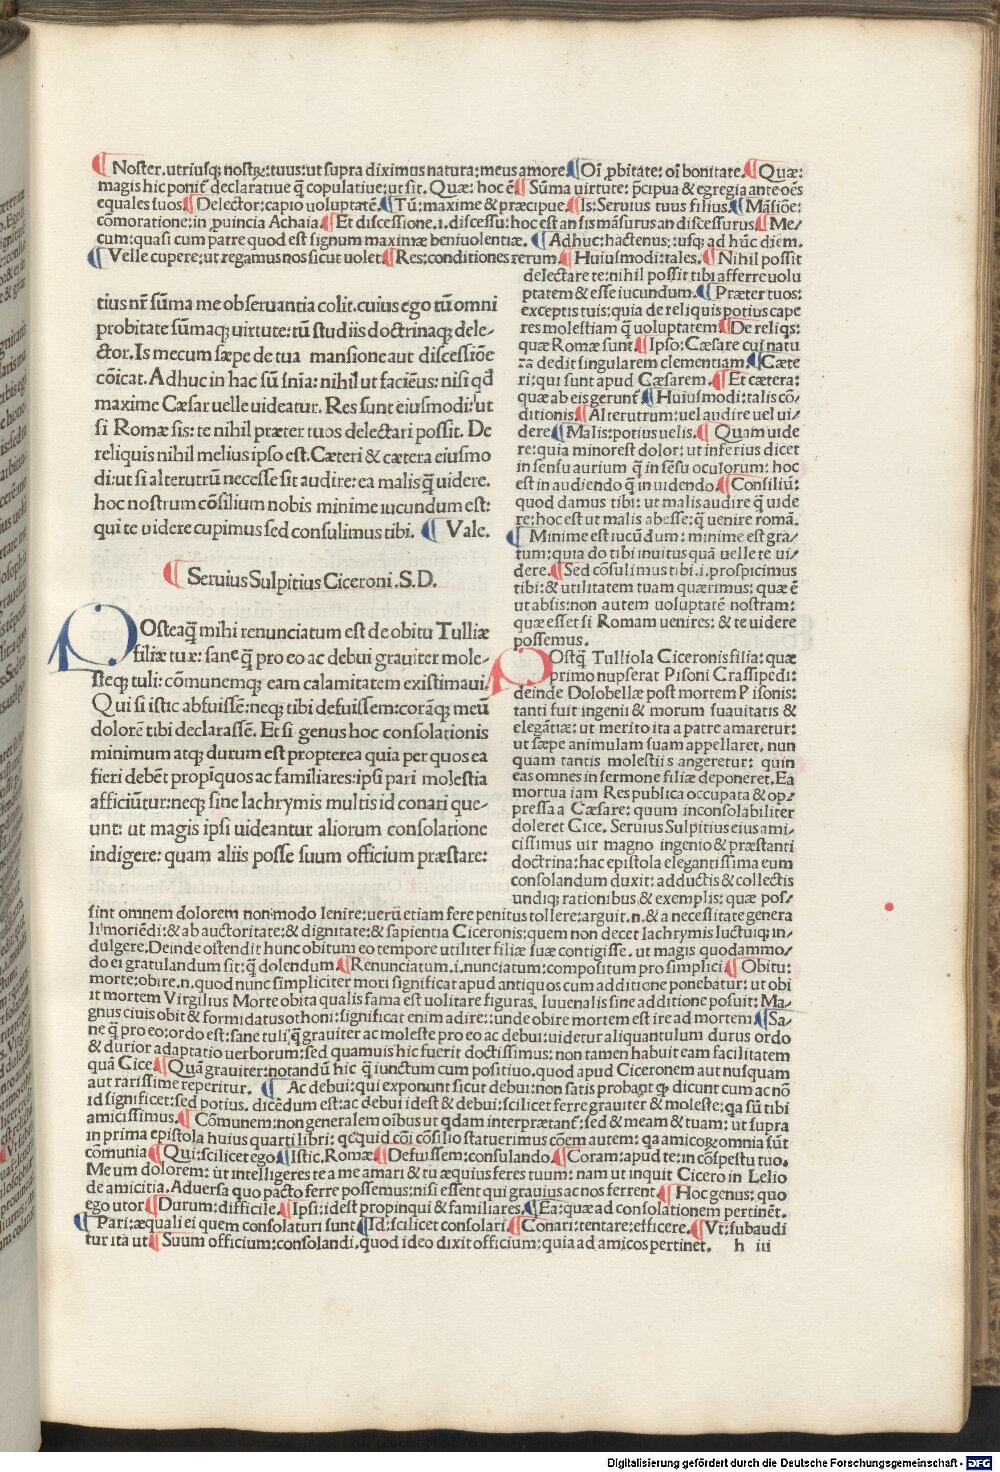 Noster.utriusq; nostrꝝ:tuus:ut supra diximus natura:meus amore. Oī ꝓbitate:oī bonitate. Quæ:
magis hic ponit̃ declaratiue q̄ copulatiue:ut sit. Quæ: hoc ē Sūma uirtute: p̄cipua & egregia ante oēs
equales suos. Delector:capio uoluptatē. Tū:maxime & præcipue. Is:Seruius tuus filius. Māsiōe:
cōmoratione:in ꝓuincia Achaia. Et discessione.i.discessu:hoc est an sis māsurus an discessurus. Me-
cum:quasi cum patre quod est signum maximæ beniuolentiæ. Adhuc:hactenus::usq; ad hūc diem.
Velle cupere:ut regamus nos sicut uolet Res:conditiones rerum. Huiusmodi:tales. Nihil possit
tius nr̄ sūma me obseruantia colit.cuius ego tū omni
probitate sūmaq; uirtute:tū studiis doctrinaq; dele-
ctor.Is mecum sæpe de tua mansione aut discessiōe
cōicat.Adhuc in hac sū snīa:nihil ut faciēus:nisi qd̄
maxime Cæsar uelle uideatur. Res sunt eiusmodi:ut
si Romæ sis:te nihil præter tuos delectari possit. De
reliquis nihil melius ipso est.Cæteri & cætera eiusmo
di:ut si alterutrū necesse sit audire:ea malis q̄ uidere.
hoc nostrum cōsilium nobis minime iucundum est:
qui te uidere cupimus sed consulimus tibi. Vale.
Seruius Sulpitius Ciceroni.S.D.
POsteaq̄ mihi renunciatum est de obitu Tulliæ
filiæ tuæ: sane q̄ pro eo ac debui grauiter mole-
steq; tuli:cōmunemq; eam calamitatem existimaui.
Qui si istic abfuissē:neq; tibi defuissem:corāq; meū
dolorē tibi declarassē. Etsi genus hoc consolationis
minimum atq; durum est propterea quia per quos ea
fieri debēt propīquos ac familiares:ipsi pari molestia
afficiūtur:neq; sine lachrymis multis id conari que-
unt: ut magis ipsi uideantur aliorum consolatione
indigere: quam aliis posse suum officium præstare:
delectare te:nihil possit tibi afferre uolu
ptatem & esse iucundum. Præter tuos:
exceptis tuis:quia de reliquis potius cape
res molestiam q̄ uoluptatem De reliqs:
quæ Romæ sunt. Ipso:Cæsare cui natu
ra dedit singularem clementiam. Cæte
ri:qui sunt apud Cæsarem. Et cætera:
quæ ab eis gerunt̃ Huiusmodi:talis cō-
ditionis. Alterutrum:uel audire uel ui-
dere Malis:potius uelis. Quam uide
re:quia minor est dolor: ut inferius dicet
in sensu aurium q̄ in sēsu oculorum: hoc
est in audiendo q̄ in uidendo. Consiliū:
quod damus tibi: ut malis audire q̄ uide
re:hoc est ut malis abesse:q̄ uenire romā.
Minime est iucūdum: minime est gra-
tum:quia do tibi inuitus quā uelle te ui-
dere. Sed cōsulimus tibi.i.prospicimus
tibi:& utilitatem tuam quærimus: quæ ē
ut absis:non autem uoluptatē nostram:
quæ esset si Romam uenires: & te uidere
possemus.
POstq̄ Tulliola Ciceronis filia: quæ
primo nupserat Pisoni Crassipedi:
deinde Dolobellæ post mortem Pisonis:
tanti fuit ingenii & morum suauitatis &
elegātiæ: ut merito ita a patre amaretur:
ut sæpe animulam suam appellaret. nun
quam tantis molestiis angeretur: quin
eas omnes in sermone filiæ deponeret. Ea
mortua iam Respublica occupata & op-
pressa a Cæsare: quum inconsolabiliter
doleret Cice. Seruius Sulpitius eius ami-
cissimus uir magno ingenio & præstanti
doctrina: hac epistola elegantissima eum
consolandum duxit: adductis & collectis
undiq; rationibus & exemplis: quæ pos-
sint omnem dolorem non modo lenire:uerū etiam fere penitus tollere:arguit.n.& a necessitate genera
li moriēdi:& ab auctoritate:& dignitate:& sapientia Ciceronis:quem non decet lachrymis luctuiq; in-
dulgere.Deinde ostendit hunc obitum eo tempore utiliter filiæ suæ contigisse. ut magis quodammo-
do ei gratulandum sit:q̄ dolendum. Renunciatum.i.nunciatum:compositum pro simplici. Obitu:
morte:obire.n.quod nunc simpliciter mori significat apud antiquos cum additione ponebatur: ut obi
it mortem Virgilius Morte obita qualis fama est uolitare figuras. Iuuenalis sine additione posuit: Ma-
gnus ciuis obit & formidatus othoni:significat enim adire::unde obire mortem est ire ad mortem. Sa-
ne q̄ pro eo:ordo est:sane tuli q̄ grauiter ac moleste pro eo ac debui:uidetur aliquantulum durus ordo
& durior adaptatio uerborum:sed quamuis hic fuerit doctissimus:non tamen habuit eam facilitatem
quā Cice. Quā grauiter:notandū hic q̄ iunctum cum positiuo.quod apud Ciceronem aut nusquam
aut rarissime reperitur. Ac debui:qui exponunt sicut debui:non satis probant̃ ꝙ dicunt cum ac nō
id significet:sed potius. dicēdum est:ac debui idest & debui:scilicet ferre grauiter & moleste:qa sū tibi
amicissimus. Cōmunem:non generalem oībus ut qdam interprætant̃:sed & meam & tuam: ut supra
in prima epistola huius quarti libri: qcquid cōi cōsilio statuerimus cōem autem: qa amicoꝝ omnia sūt
cōmunia Qui:scilicet ego. Istic.Romæ Defuissem:consulando. Coram:apud te:in cōspectu tuo.
Meum dolorem: ut intelligeres te a me amari & tu æquius feres tuum: nam ut inquit Cicero in Lelio
de amicitia. Aduersa quo pacto ferre possemus:nisi essent qui grauius ac nos ferrent. Hoc genus: quo
ego utor Durum:difficile. Ipsi:idest propinqui & familiares. Ea:quæ ad consolationem pertinēt.
Pari:æquali ei quem consolaturi sunt Id:scilicet consolari. Conari:tentare:efficere. Vt:subaudi
tur ita ut Suum officium:consolandi.quod ideo dixit officium:quia ad amicos pertinet. h iii
Digitalisierung gefördert durch die Deutsche Forschungsgemeinschaft - DFG